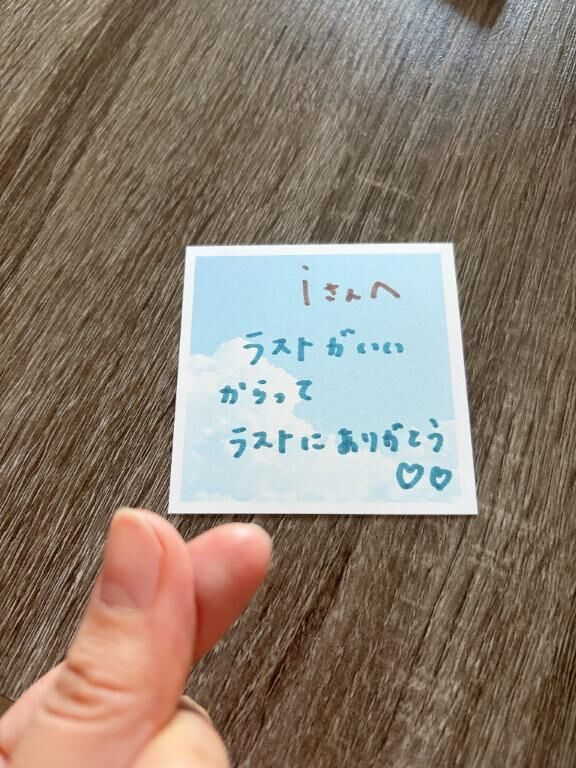 iさんへ
ラストがいい
からって
ラストにありがとう
♡♡